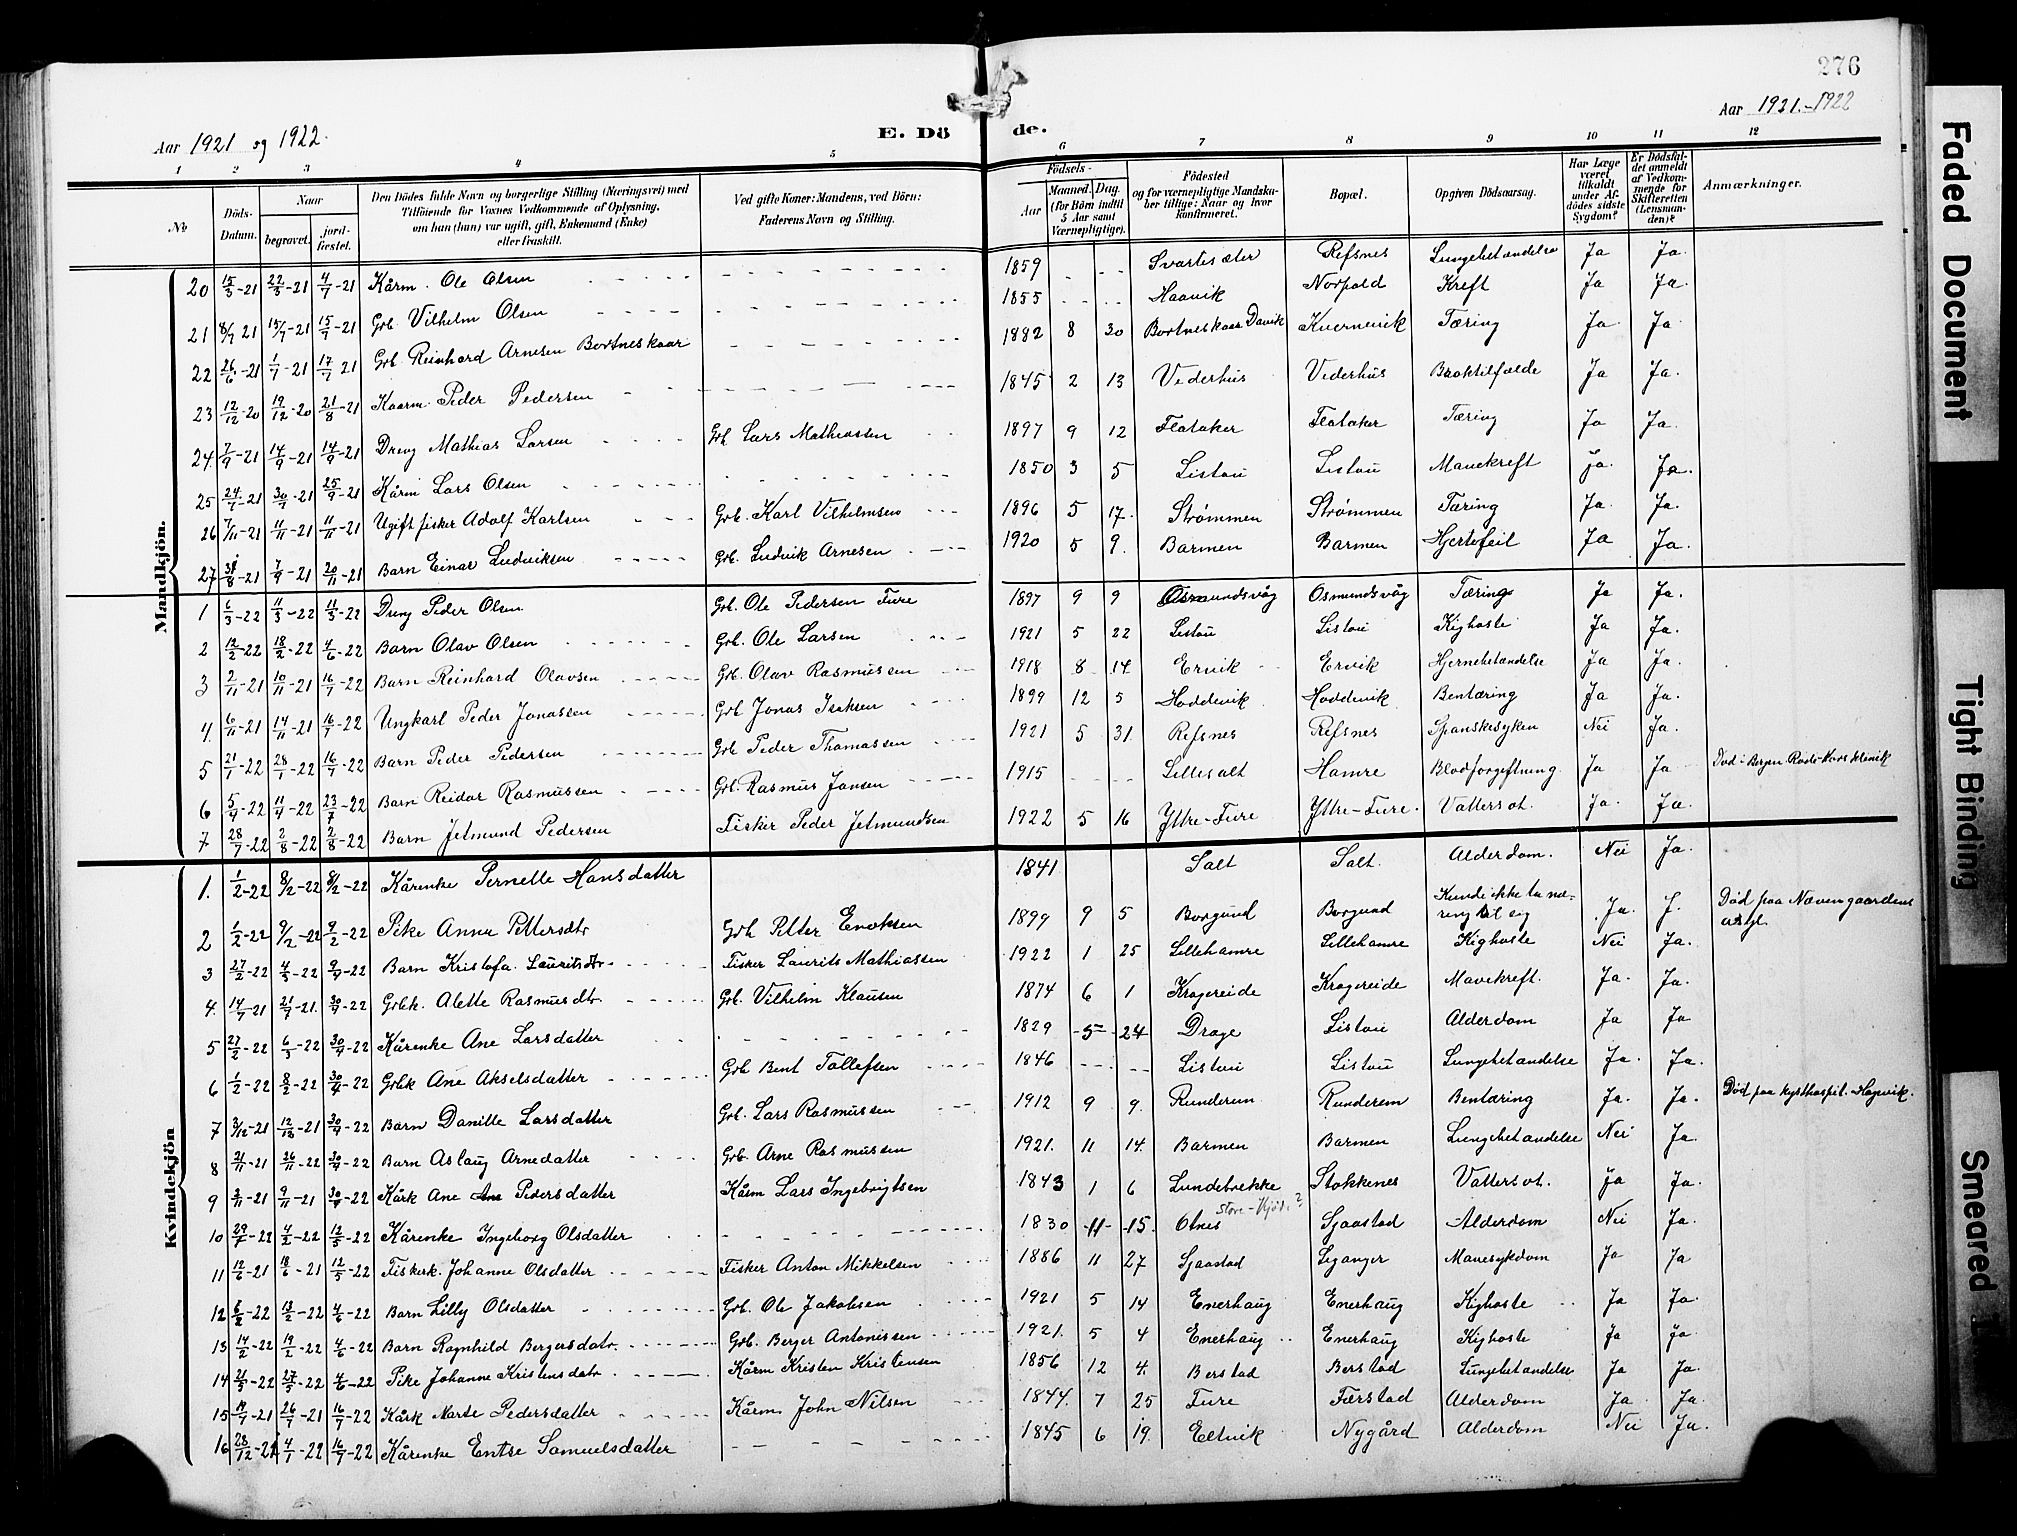 276
Aar 1921 og 1922.
E. Dö
de.
Aar 1921.-1922
1 2 3 4 5 6 7 8 9 10 11 12
No
Döds-Datum.
Naar
begravet.
jord-fæstet.
Den Dödes fulde Navn og borgerlige Stilling (Næringsvei) med Tilföiende for Voxnes Vedkommende af Oplysning, om han (hun) var ugift, gift, Enkemand (Enke) eller fraskilt.
Ved gifte Koner: Mandens, ved Börn: Faderens Navn og Stilling.
Födsels-
Aar
Maaned. Dag. (for Börn indtil 5 Aar samt Værnepligtige).
Födested og for værnepligtige Mandskaber tillige: Naar og hvor konfirmeret.
Bopæl.
Opgiven Dödsaarsag.
Har Læge været tilkaldt under Afdödes sidste Sygdom?
Er Dödsfaldet anmeldt af Vedkommende for Skifteretten (Lensmanden)?
Anmærkninger.
Mandkjön.
20 15/3-21 22/3-21 4/7-21 Kårm. Ole Olsen 1859 Svartesæter Refsnes Lungebetændelse Ja Ja.
21 8/7 21 15/7-21 15/7-21 Grb. Vilhelm Olsen 1855 Haavik Norpold Kreft Ja Ja.
22 26/6-21 1/7-21 17/7 21 Grb. Reinhard Arnesen Bortneskaar 1882 8 30 Bortneskaar Davik Kvernevik Tæring Ja Ja.
23 12/12-20 19/12-20 21/8-21 Kaarm. Peder Pedersen 1845 2 13 Vederhus Vederhus Broktilfælde Ja Ja.
24. 7/9-21 14/9-21 14/9-21 Dreng Mathias Larsen Grb. Lars Mathiassen 1897 9 12 Flataker Flataker Tæring Ja Ja.
25 24/7-21 30/7-21 25/9-21 Kårm Lars Olsen 1850 3 5 Listou Listou Mavekreft Ja. Ja.
26 7/11-21 11/11-21 11/11-21 Ugift fisker Adolf Karlsen Grb. Karl Vilhelmsen 1896 5 17. Strømmen Strømmen Tæring Ja. Ja.
27 31/8-21 7/9-21 20/11-21 Barn Einar Ludviksen Grb. Ludvik Arnesen 1920 5 9. Barmen Barmen Hjertefeil Ja Ja.
1 6/3-22 11/3-22 11/3-22 Dreng Peder Olsen Grb. Ole Pedersen Fure 1897 9 9 Osmundsvåg Osmundsvåg Tæring Ja Ja.
2 12/2-22 18/2-22 4/6-22 Barn Olav Olsen Grb. Ole Larsen 1921 5 22 Listou Listou Kighoste Ja Ja.
3 2/11-21 10/11-21 16/7-22 Barn Reinhard Olavsen Grb. Olav Rasmussen 1918 8 14 Ervik Ervik Hjernebetændelse Ja Ja.
4. 6/11-21 14/11-21 16/7-22 Ungkarl Peder Jonassen Grb Jonas Isaksen 1899 12 5 Hoddevik Hoddevik Bentæring Ja Ja.
5 21/1-22 28/1-22 16/7-22 Barn Peder Pedersen Grb Peder Thomassen 1921 5 31. Refsnes Refsnes Spanskesyken Nei Ja.
6 5/4-22 11/4-22 23/7-22 Barn Reidar Rasmussen Grb. Rasmus Jansen 1915 Lillesalt Hamre Blodforgiftning. Ja Ja Død i Bergen Røde-Kors klinik
7 28/7-22 2/8-22 2/8-22 Barn Jetmund Pedersen Fisker Peder Jetmundsen 1922 5 16 Yttre-Fure Yttre-Fure. Vattersot. Ja. Ja.
Kvindekjön
1. 1/2-22 8/2-22 8/2-22 Kårenke Pernelle Hansdatter 1841 Salt Salt. Alderdom. Nei Ja.
2 1/2-22 9/2-22 9/2-22 Pike Anna Pettersdtr Grb Petter Enoksen 1899 9 5 Borgund Borgund Kunde ikke ta næring til sig Ja. J. Død paa Nævengaardens asyl.
3 27/2-22 4/3-22 9/4-22 Barn Kristofa. Lauritsdtr. Fisker Laurits Mathiassen 1922 1 25 Lillehamre Lillehamre Kighoste Nei Ja.
4. 14/7-21 21/7-21. 30/4-22 Grbk. Alette Rasmusdtr Grb. Vilhelm Klausen 1874 6 1 Krogereide Krogereide Mavekreft. Ja. Ja.
5 27/2-22 6/3-22 30/4-22 Kårenke Ane Larsdatter 1829 5 24 Drage Listou Alderdom Ja Ja
6 1/2-22 8/2-22 30/4-22 Grbk Ane Akselsdatter Grb Bent Tollefsen 1846 Listou Listou Lungebetændelse Ja. Ja.
7 3/12-21 12/12-21 30/4-22 Barn Danille Larsdatter Grb. Lars Rasmussen 1912 9 9. Runderem Runderem Bentæring Ja. Ja. Død paa kysthospit. Hagevik.
8 21/11-21 26/11-22 30/4-22 Barn Aslaug Arnedatter Grb. Arne Rasmussen 1921. 11 14. Barmen Barmen Lungebetændelse Nei Ja.
9 2/11-21 9/11-21 30/4-22 Kårk Ane Pedersdatter Kårm Lars Ingebrigtsen 1843 1 6 Lundebrekke Stokkenes Vattersot. Ja Ja.
Store-Kjød.?
10 29/1-22 4/2-22 12/5-22 Kårenke Ingeborg Olsdatter 1830 11 15. Otnes Sjaastad Alderdom Nei Ja.
11 12/6-21 18/6-21 12/5-22 Fiskerk. Johanne Olsdatter Fisker Anton Mikkelsen 1886 11 27 Sjaastad Leganger Mavesykdom Ja Ja
12 6/2-22 13/2-22 4/6-22 Barn Lilly Olsdatter Grb. Ole Jakobsen 1921 5 14 Enerhaug Enerhaug Kighoste Ja Ja.
13 14/2-22 19/2-22 4/6-22 Barn Ragnhild Bergersdatr. Grb. Berger Antonissen 1921. 5 4 Enerhaug Enerhaug Kighoste Ja Ja.
14 21/5-22 27/5-22 4/6-22 Pike Johanne Kristensdatr Kårm Kristen Kristensen 1856 12 4. Berstad Berstad Lungebetændelse Ja Ja.
15 19/7-21 26/7-21 16/7-22 Kårk Marte Pedersdatter Kårm. John Nilsen 1844. 7 25 Fure Færstad Alderdom Ja. Ja.
16 28/12-21 4/1-22 16/7-22 Kårenke Entse Samuelsdatter 1845 6 19. Eltvik Nygård Alderdom Nei Ja.
Faded Document
Tight Binding
Smeared